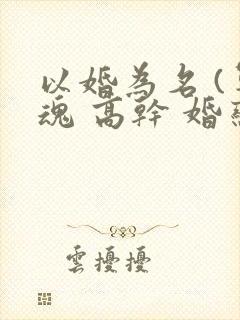 以婚為名(
魂 高幹 婚
雲擾擾